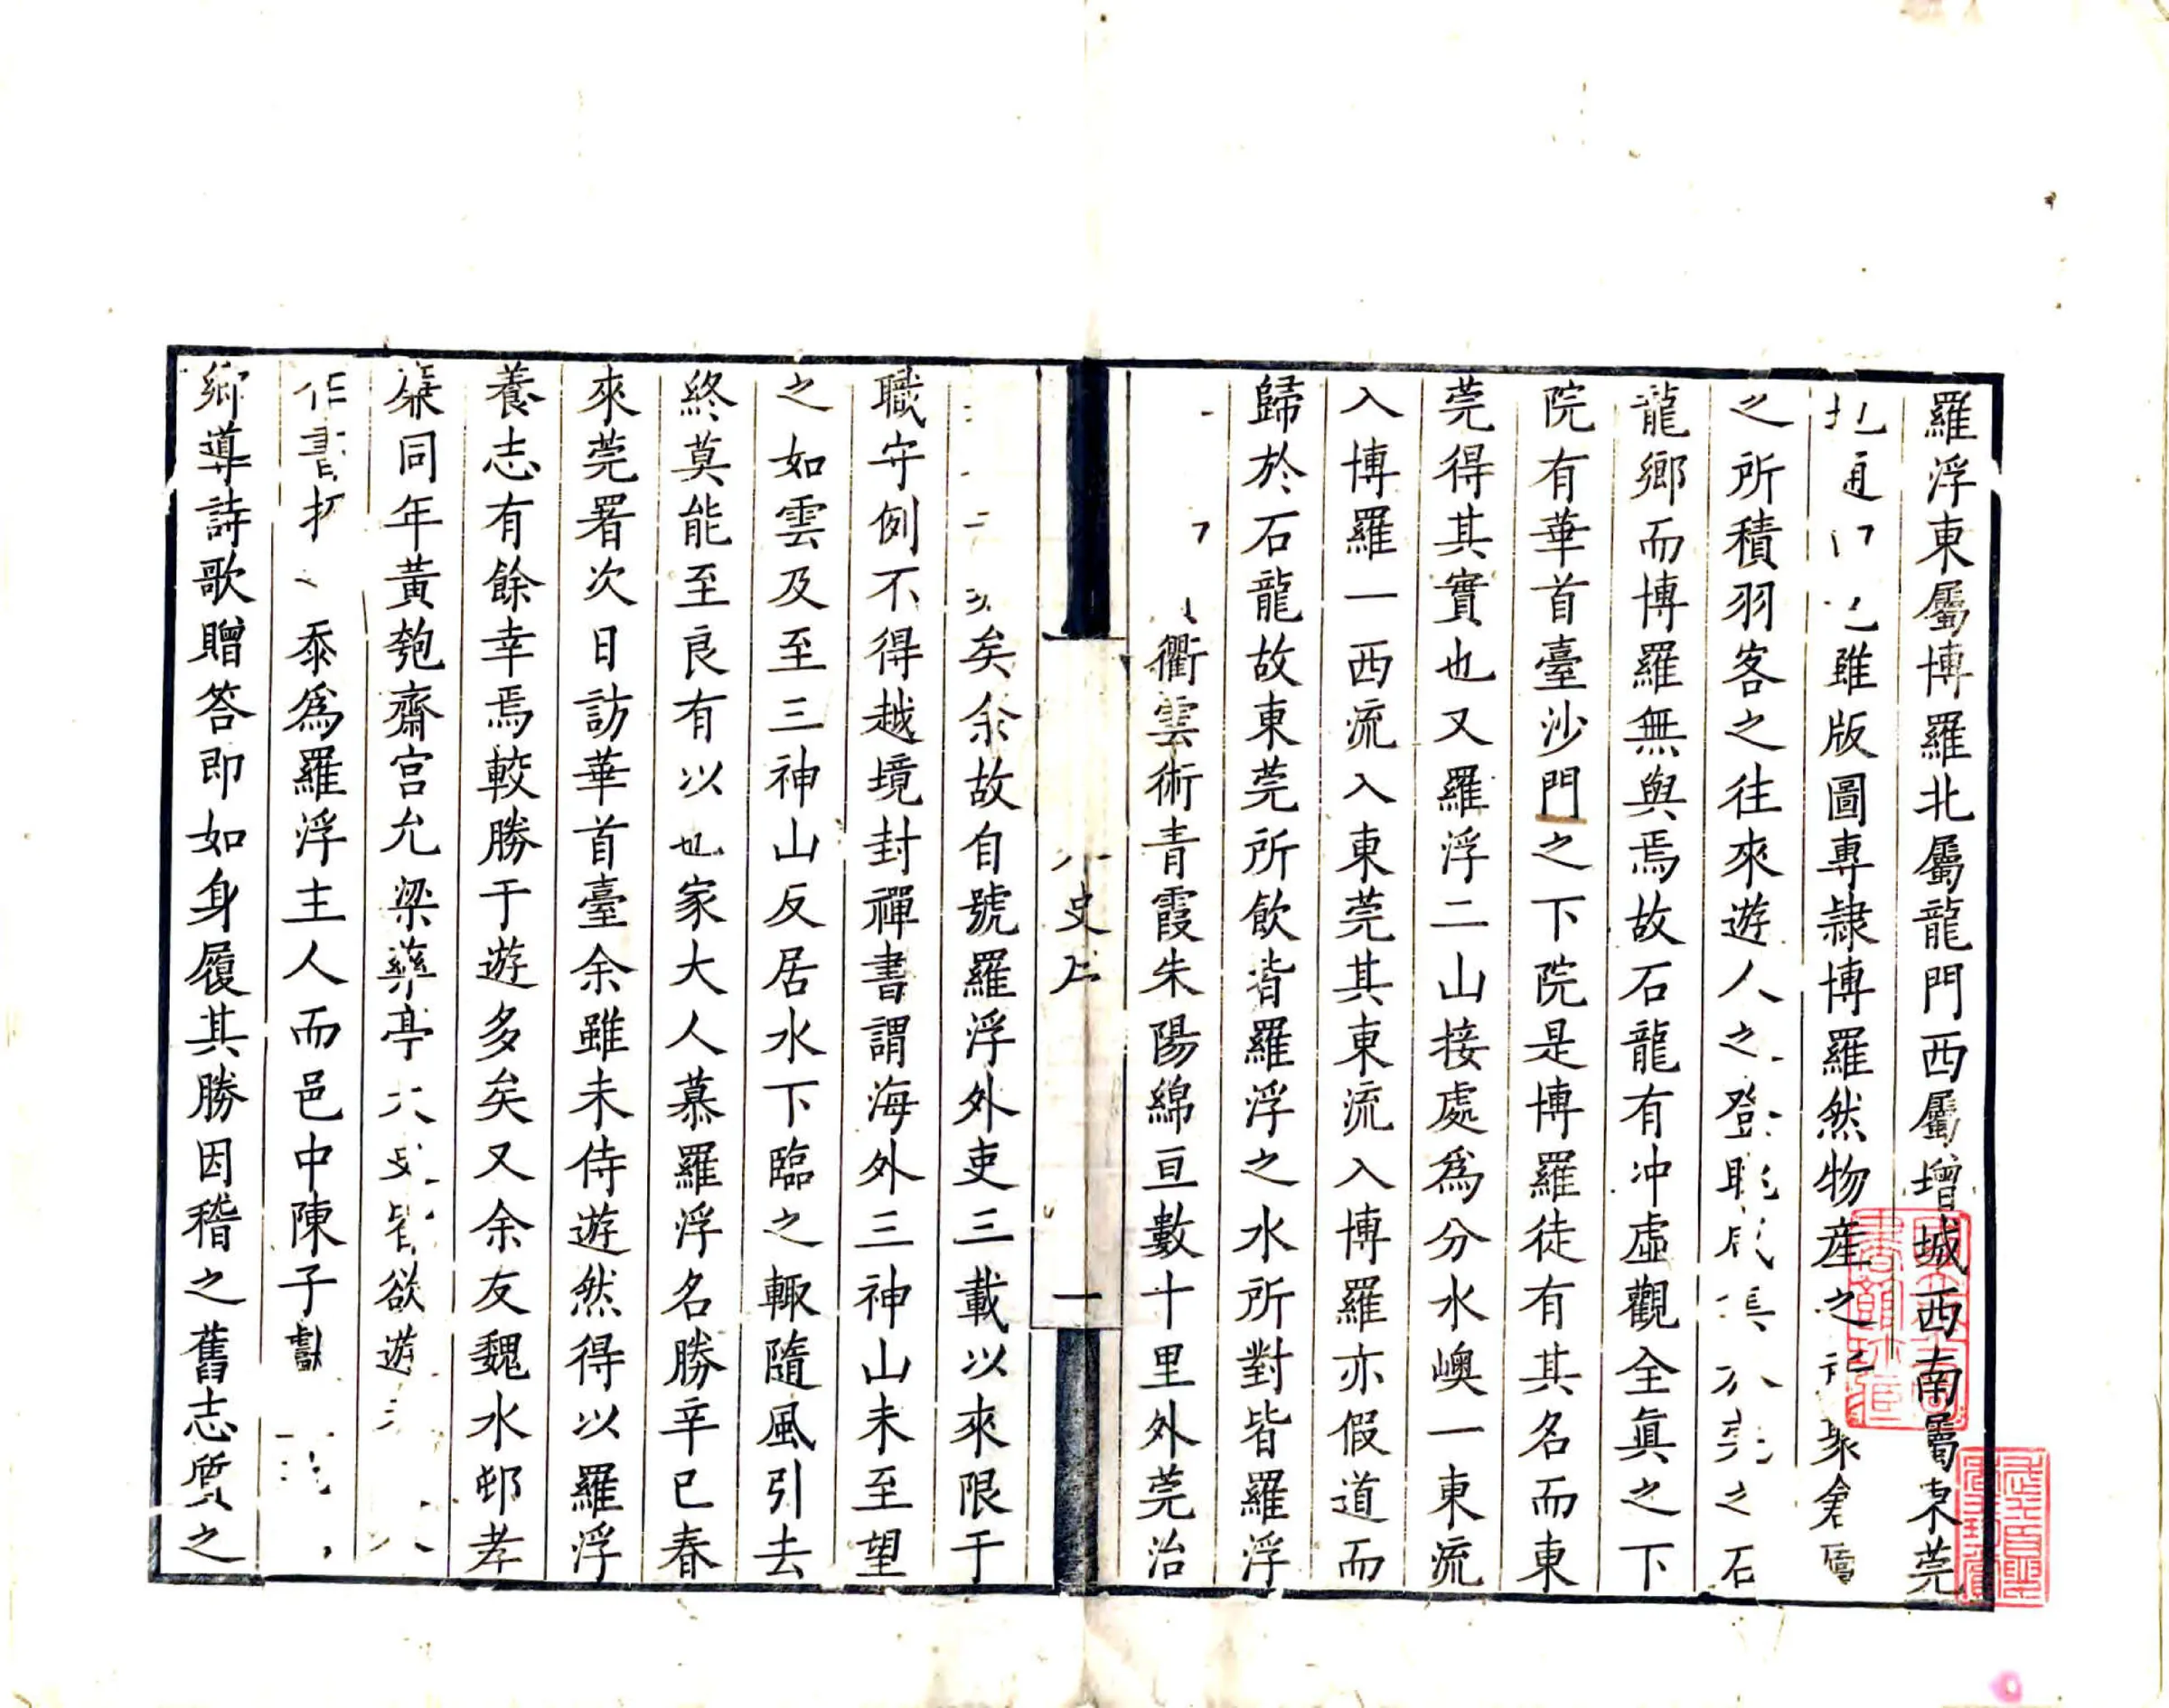 羅浮東屬博羅北屬龍門西屬增城西南屬東莞
雖版圖專隷博羅然物産之聚
之所積羽客之往來遊人之登之石
龍鄉而博羅無與焉故石龍有冲虛觀全真之下
院有華首臺沙門之下院是博羅徒有其名而東
莞得其實也又羅浮二山接處爲分水嶴一東流
入博羅一西流入東莞其東流入博羅亦假道而
歸於石龍故東莞所飲皆羅浮之水所對皆羅浮
衢雲術青霞朱陽綿亘數十里外莞治
史
一
矣余故自號羅浮外吏三載以來限于
職守例不得越境封禪書謂海外三神山未至望
之如雲及至三神山反居水下臨之輙隨風引去
終莫能至良有以也家大人慕羅浮名勝辛巳春
來莞署次日訪華首臺余雖未侍遊然得以羅浮
養志有餘幸焉較勝于遊多矣又余友魏水邨孝
廉同年黃匏齋宮允梁藥亭皆欲遊
作書泰爲羅浮主人而邑中陳子
鄉導詩歌贈答即如身履其勝因稽之舊志質之